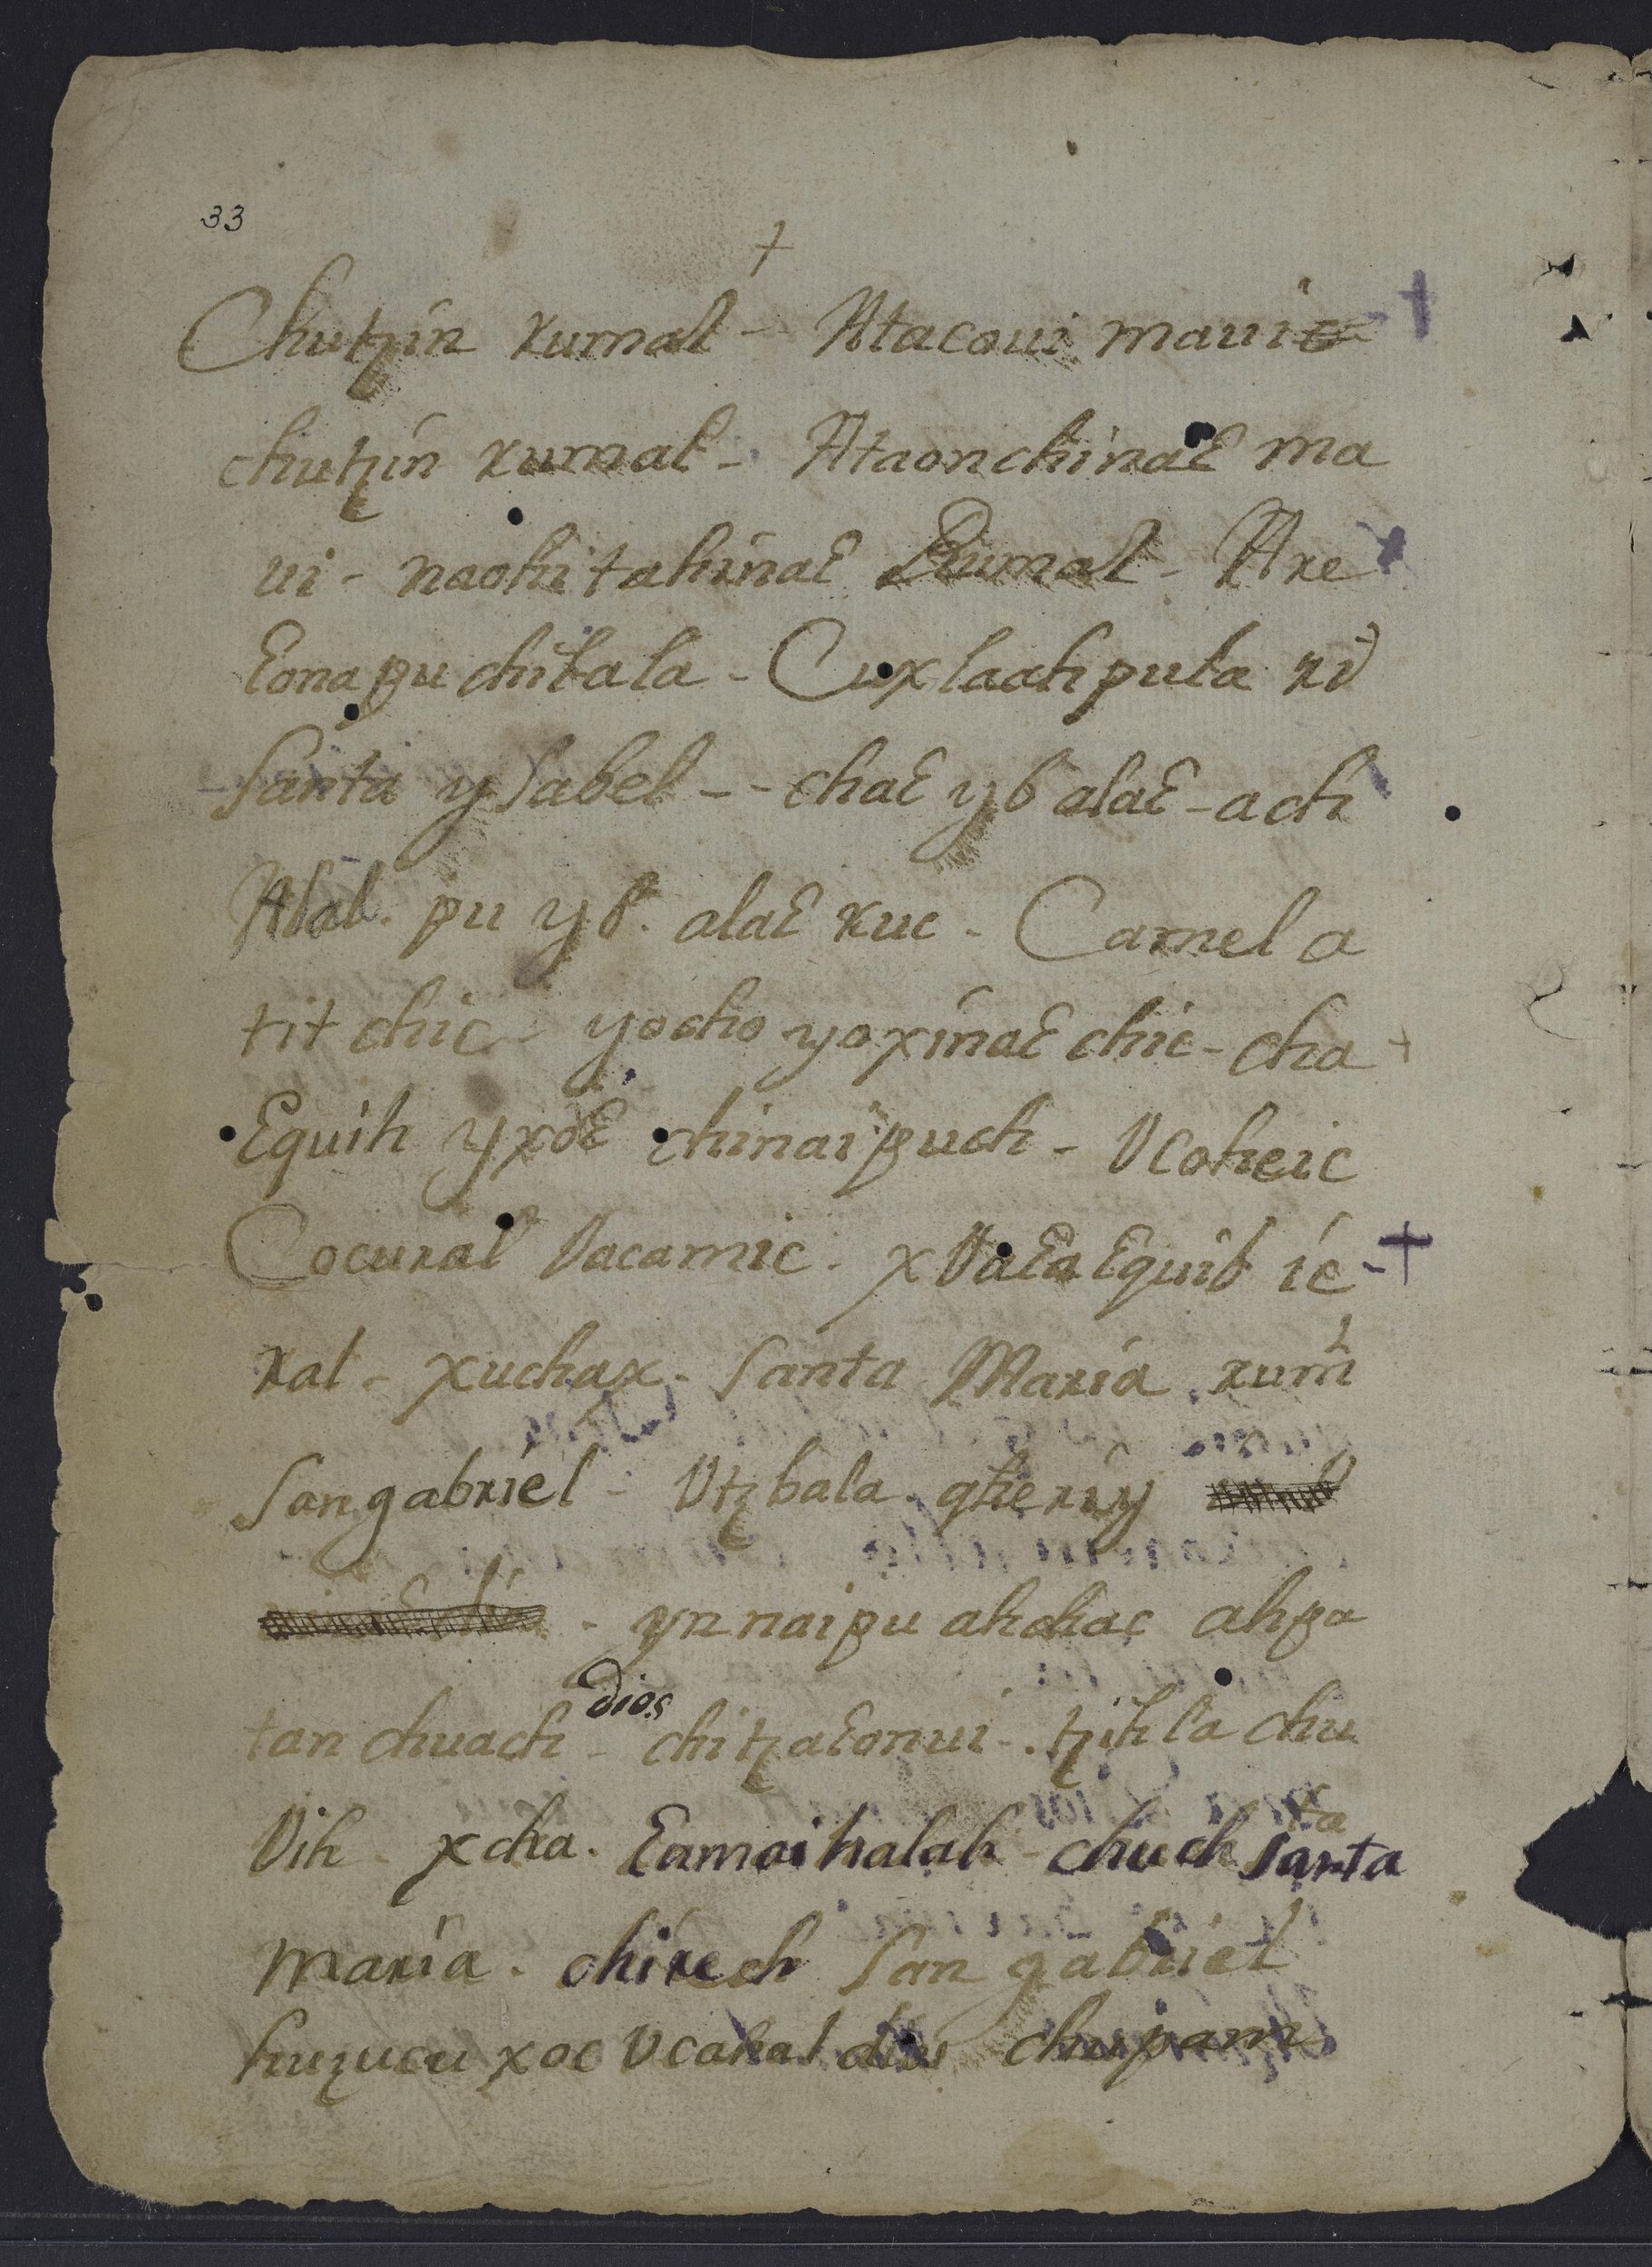 33
+
Chutzin rumal - Atacaui mauic - +
chutzin rumal - Ataonchinaɛ ma
ui - naohitahinaɛ Rumal - Are
ɛona pu chibala - Cuxlaah pula ri
Santa ysabel - - chaɛ yb alaɛ - ach
Alal. pu yb. alaɛ ruc - Camel a
tit chic - yocho yoxinaɛ chic - cha +
ɛquih yxoɛ chinai puch - Ucoheic
Cocural Vacamic. xVaɛaɛquib ie - +
ral - xuchax. Santa Maria rum̃
San gabriel - Utz bala. qheriy
- yn naipu ahchac ahpa
tan chuach - dios chitzaɛonui - . tzih la chu
Vih - xcha. ɛamaihalah - chuch santa
maria. chirech San gabriel
huzucu xoc Ucahal dios chupam